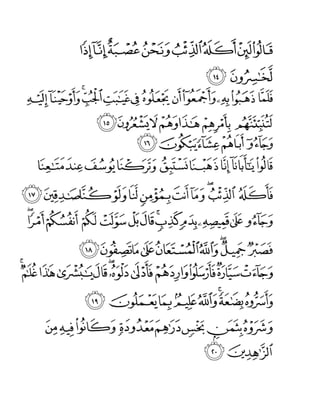 قَالُوا۟ لَئِنْ أَكَلَهُ ٱلذِّئْبُ وَنَحْنُ عُصْبَةٌ إِنَّآ إِذًا
لَّخَـٰسِرُونَ ١٤
فَلَمَّا ذَهَبُوا۟ بِهِۦ وَأَجْمَعُوٓا۟ أَن يَجْعَلُوهُ فِى غَيَـٰبَتِ ٱلْجُبِّ ۚ وَأَوْحَيْنَآ إِلَيْهِ
لَتُنَبِّئَنَّهُم بِأَمْرِهِمْ هَـٰذَا وَهُمْ لَا يَشْعُرُونَ ١٥
وَجَآءُوٓ أَبَاهُمْ عِشَآءً يَبْكُونَ ١٦
قَالُوا۟ يَـٰٓأَبَانَآ إِنَّا ذَهَبْنَا نَسْتَبِقُ وَتَرَكْنَا يُوسُفَ عِندَ مَتَـٰعِنَا
فَأَكَلَهُ ٱلذِّئْبُ ۖ وَمَآ أَنتَ بِمُؤْمِنٍ لَّنَا وَلَوْ كُنَّا صَـٰدِقِينَ ١٧
وَجَآءُو عَلَىٰ قَمِيصِهِۦ بِدَمٍ كَذِبٍ ۚ قَالَ بَلْ سَوَّلَتْ لَكُمْ أَنفُسُكُمْ أَمْرًا ۖ
فَصَبْرٌ جَمِيلٌ ۖ وَٱللَّهُ ٱلْمُسْتَعَانُ عَلَىٰ مَا تَصِفُونَ ١٨
وَجَآءَتْ سَيَّارَةٌ فَأَرْسَلُوا۟ وَارِدَهُمْ فَأَدْلَىٰ دَلْوَهُۥ ۖ قَالَ يَـٰبُشْرَىٰ هَـٰذَا غُلَـٰمٌ ۚ
وَأَسَرُّوهُ بِضَـٰعَةً ۚ وَٱللَّهُ عَلِيمٌۢ بِمَا يَعْمَلُونَ ١٩
وَشَرَوْهُ بِثَمَنٍۭ بَخْسٍ دَرَٰهِمَ مَعْدُودَةٍ وَكَانُوا۟ فِيهِ مِنَ
ٱلزَّٰهِدِينَ ٢٠